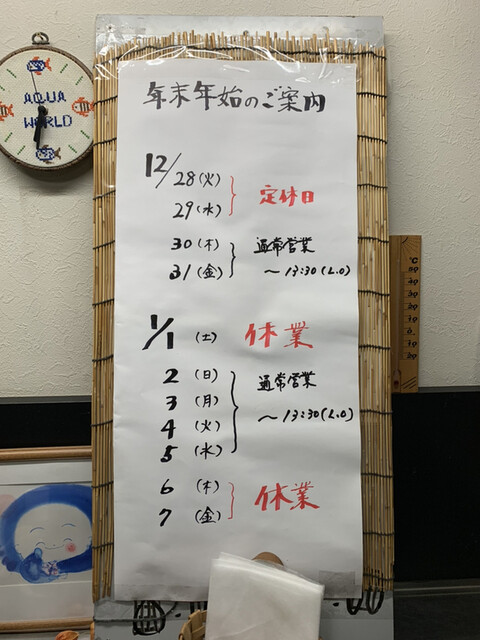 AQUA
WORLD
年末年始のご案内
12/28(火)
29(水)
定休日
30(木)
31(金)
通常営業
～13:30(L.O)
1/1(土) 休業
2(日)
3(月)
4(火)
5(水)
通常営業
～13:30(L.O)
6(木)
7(金)
休業
℃